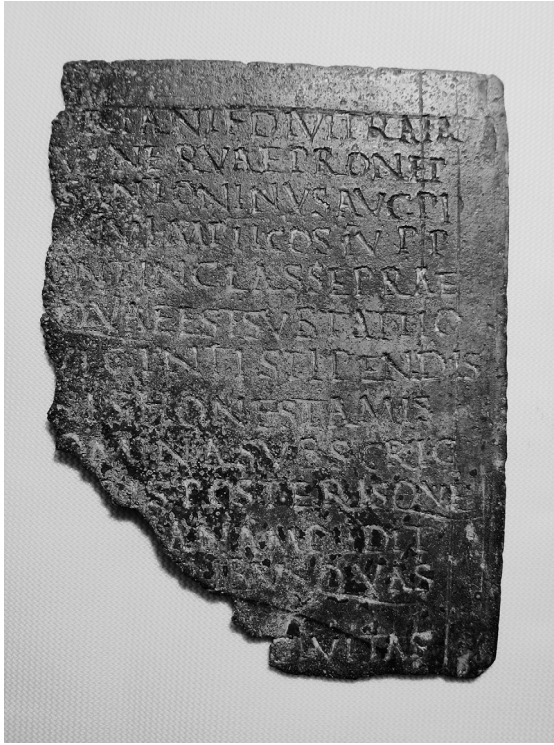 RIANI F DIVI TRAIA
NERVAE PRONEP
ANTONINVS AVG PI
IMP II COS IV P P
IN CLASSE PRAE
QVAE EST SVB TATTIO
VIGINTI STIPENDIS
HONESTA MIS
OMINA SVBSCRIC
POSTERISQVE
ANAM DEDIT
QVAS
IVITAS